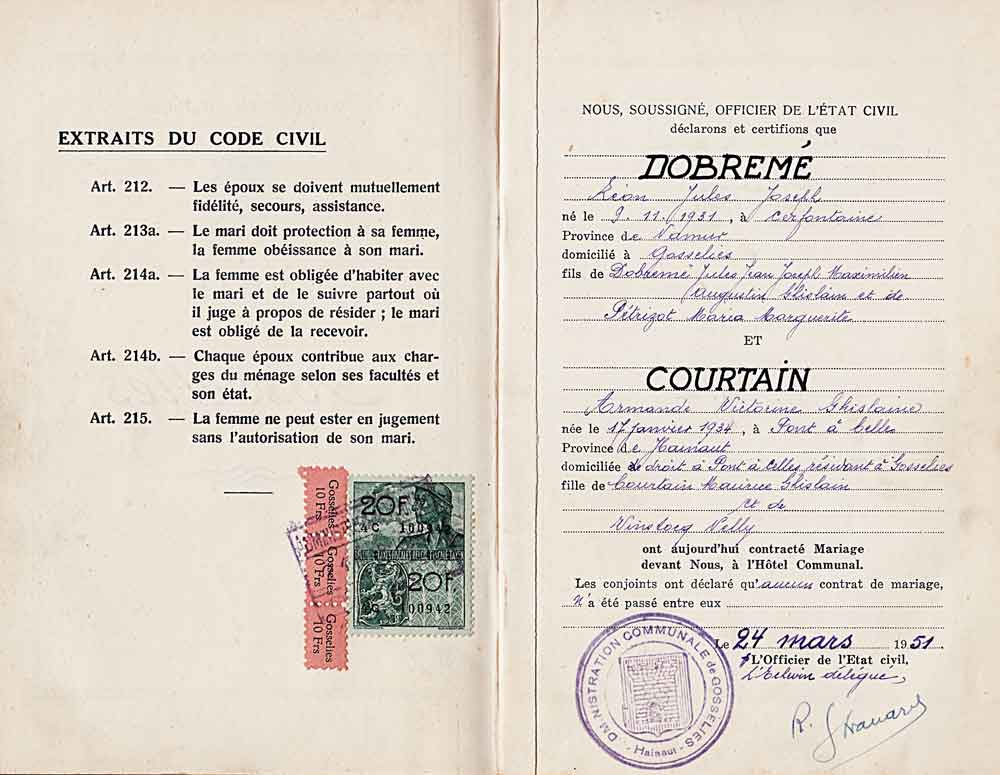 EXTRAITS DU CODE CIVIL
Art. 212. — Les époux se doivent mutuellement
fidélité, secours, assistance.
Art. 213a. — Le mari doit protection à sa femme,
la femme obéissance à son mari.
Art. 214a. — La femme est obligée d'habiter avec
le mari et de le suivre partout où
il juge à propos de résider ; le mari
est obligé de la recevoir.
Art. 214b. — Chaque époux contribue aux char-
ges du ménage selon ses facultés et
son état.
Art. 215. — La femme ne peut ester en jugement
sans l'autorisation de son mari.
Gosselies
10 Frs
Gosselies
10 Frs
Gosselies
10 Frs
20F
20F
00942
NOUS, SOUSSIGNÉ, OFFICIER DE L'ÉTAT CIVIL
déclarons et certifions que
DOBREMÉ
Léon Jules Joseph
né le 9.11.1931, à Cerfontaine
Province de Namur
domicilié à Gosselies
fils de Dobremé Jules Jean Joseph Maximilien
Augustin Ghislain et de
Pétrizot Maria Marguerite
ET
COURTAIN
Armande Victorine Ghislaine
née le 17 janvier 1934, à Pont à Celles
Province de Hainaut
domiciliée de droit à Pont à Celles résidant à Gosselies
fille de Courtain Maurice Ghislain
et de
Winstocq Nelly
ont aujourd'hui contracté Mariage
devant Nous, à l'Hôtel Communal.
Les conjoints ont déclaré qu'aucun contrat de mariage,
N'a été passé entre eux
Le 24 mars 1951.
L'Officier de l'Etat civil,
L'Echevin délégué,
ADMINISTRATION COMMUNALE de GOSSELIES
- Hainaut -